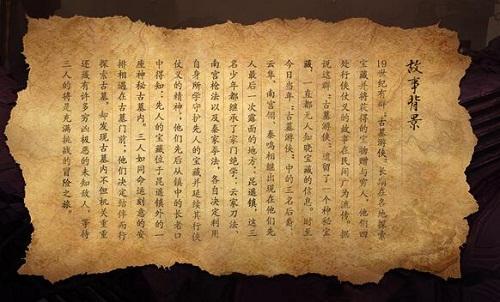 故事背景
19世纪有群“古墓游侠”，长期在各地探索
宝藏并将获得的宝物赠与穷人。他们四
处行侠仗义的故事在民间广为流传。据
说这群“古墓游侠”遗留了一个神秘宝
藏，一直都无人知晓宝藏的信息。时至
今日当年“古墓游侠”中的三名后裔：
云隼、南宫翎、秦鸣相继出现在他们先
人最后一次露面的地方：昆道镇，这三
名少年都继承了家门绝学：云家刀法、
南宫枪法以及秦家拳法。各自决定利用
自身所学守护先人的宝藏并延续其行侠
仗义的精神，他们先后从镇中的长老口
中得知：先人的宝藏位于昆道镇外的一
座神秘古墓内。三人如同命运刻意的安
排相遇在古墓门前，他们决定结伴而行
探索古墓。却发现古墓内不但机关重重
还藏有许多穷凶极恶的未知敌人，等待
三人的将是充满挑战的冒险之旅。